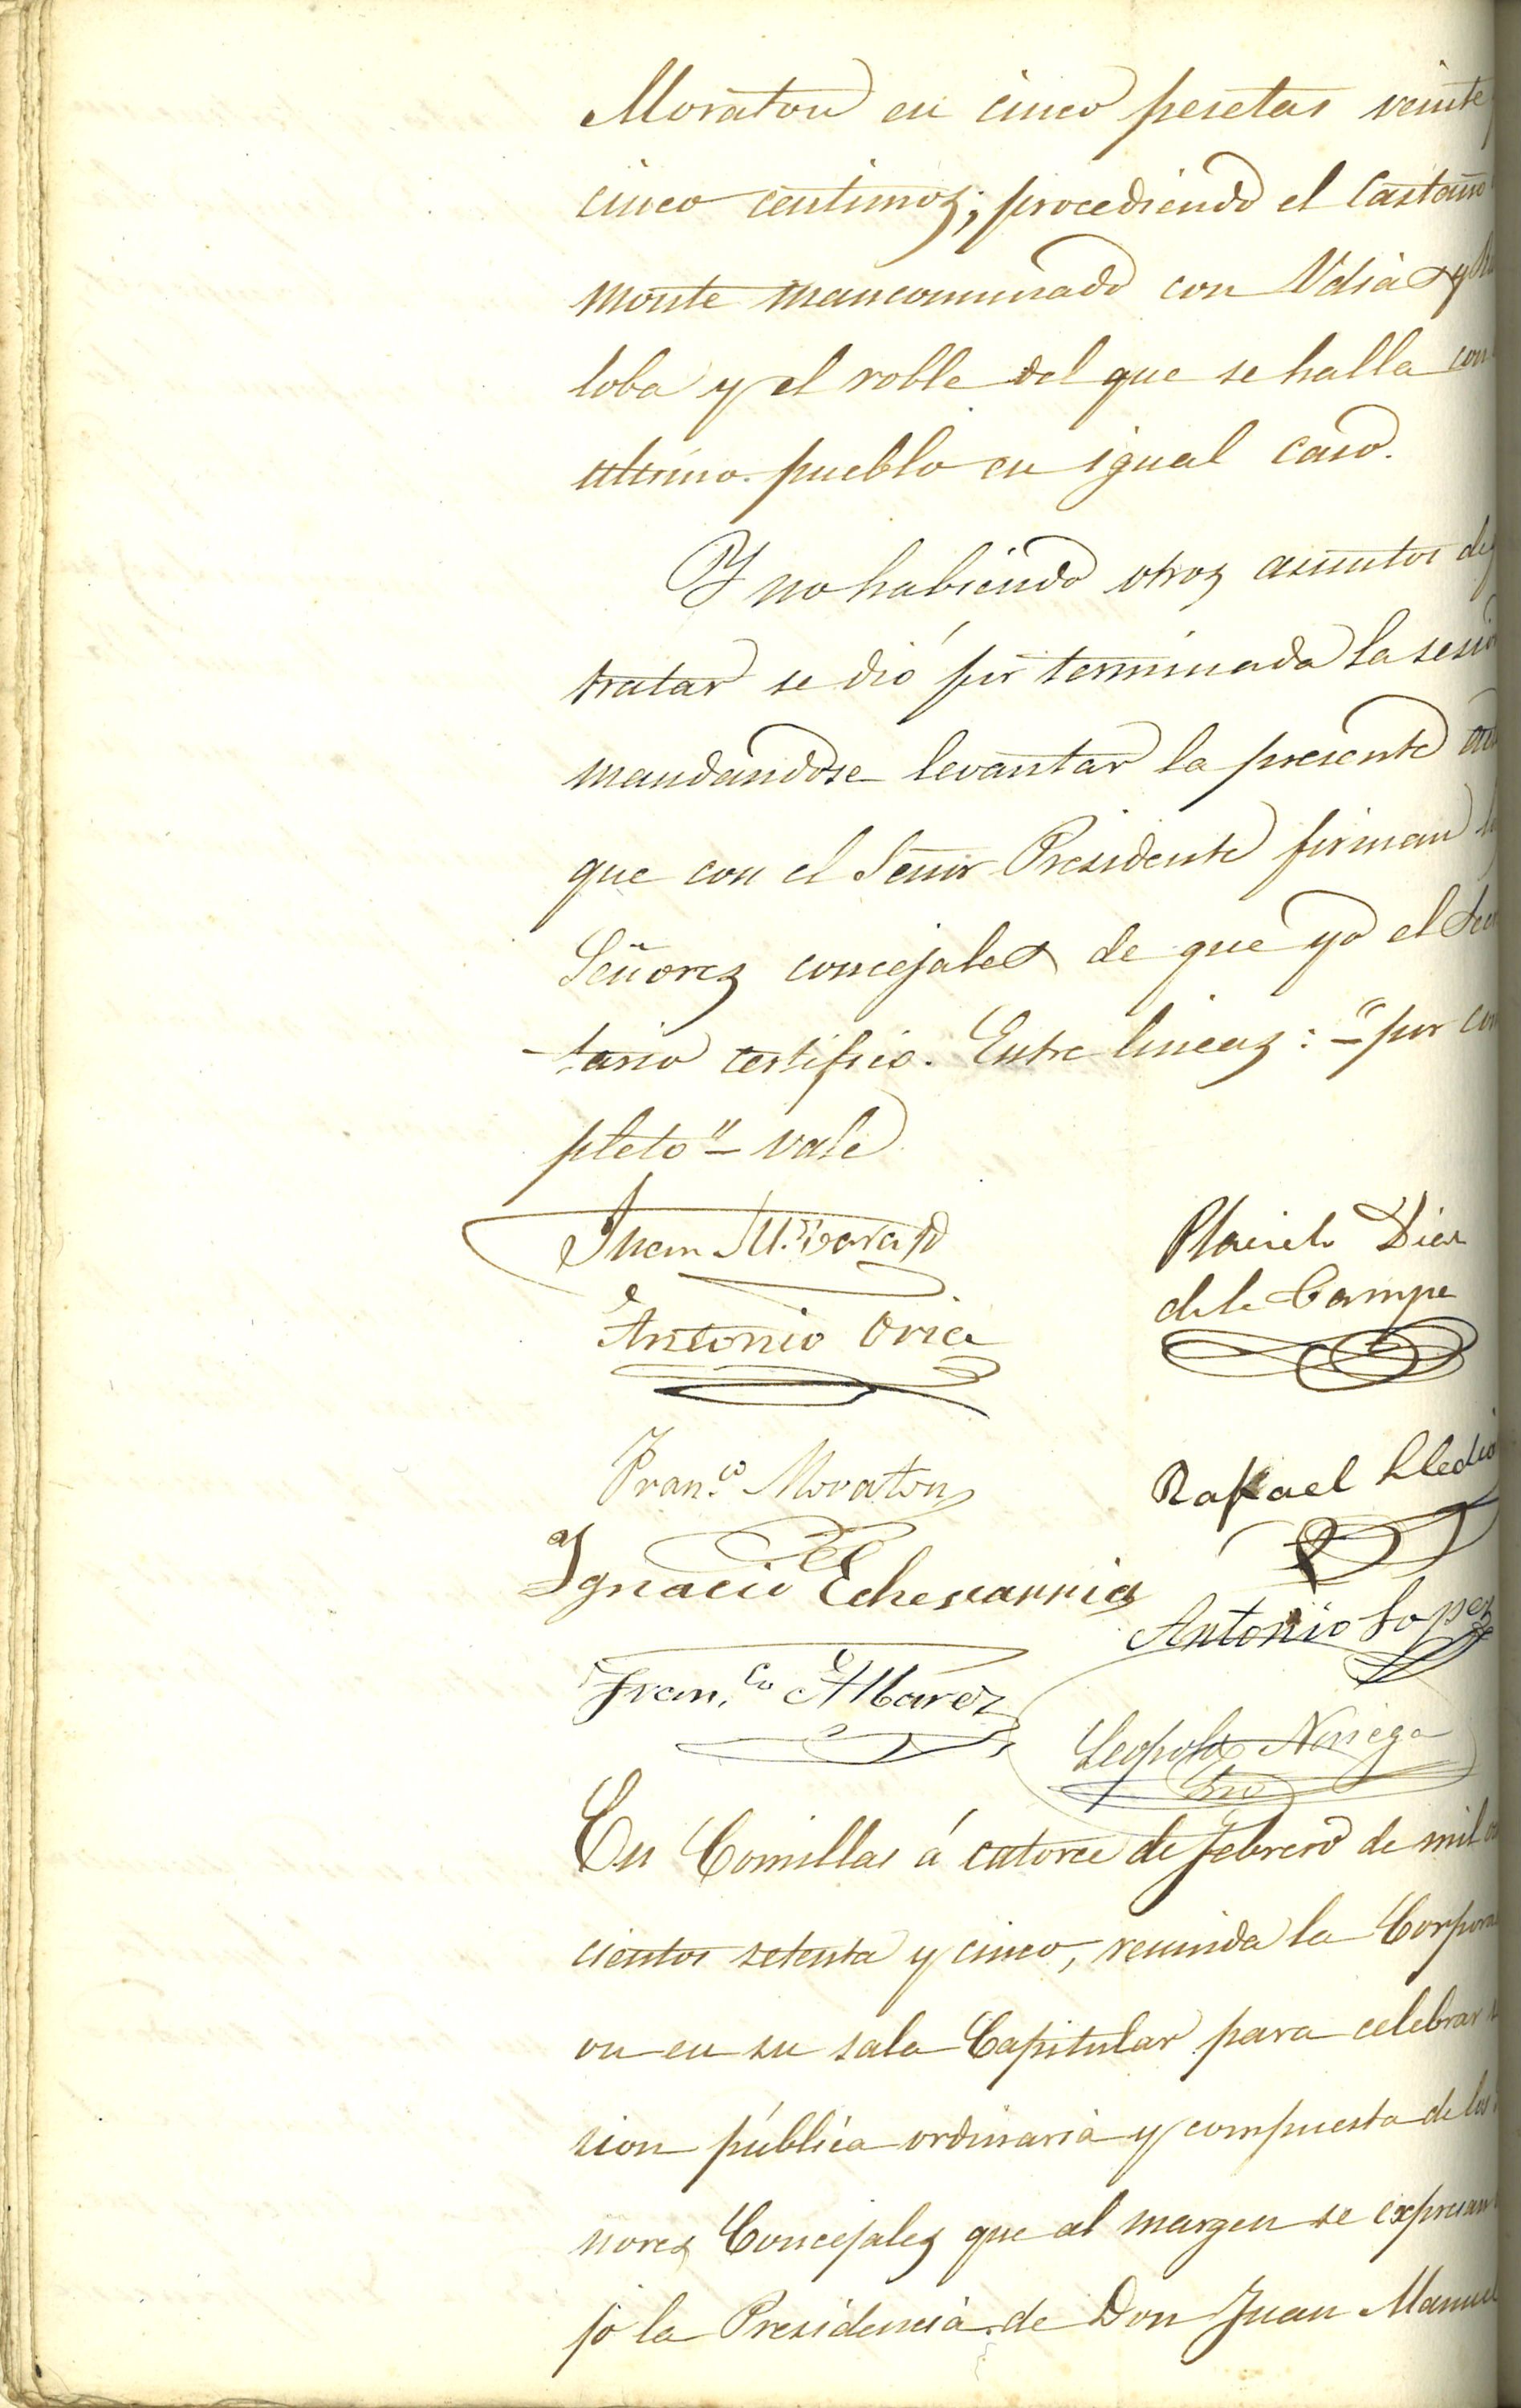 Moraton en cinco pesetas veinte y
cinco centimos; procediendo el castaño
monte mancomunado con Udias y
loba y el roble del que se halla con
ultimo pueblo en igual caso.
Y no habiendo otros asuntos de q
tratar se dió por terminada la sesion
mandandose levantar la presente acta
que con el Señor Presidente firman
Señores concejales de que yo el Secre
-tario certifico. Entre lineas: -"por com
pleto"- vale
Juan M.
Placido Diaz
de la Campa
Antonio Oria
Fran.co Moraton
Rafael
Ignacio Echevarria
Antonio Lopez
Fran.co Albarez
Leopoldo Noriega
Srio
En Comillas á catorce de febrero de mil
cientos setenta y cinco, reunida la Corpora
on en su sala Capitular para celebrar
sion pública ordinaria y compuesta de los
ñores Concejales que al margen se expresan
jo la Presidencia de Don Juan Manuel